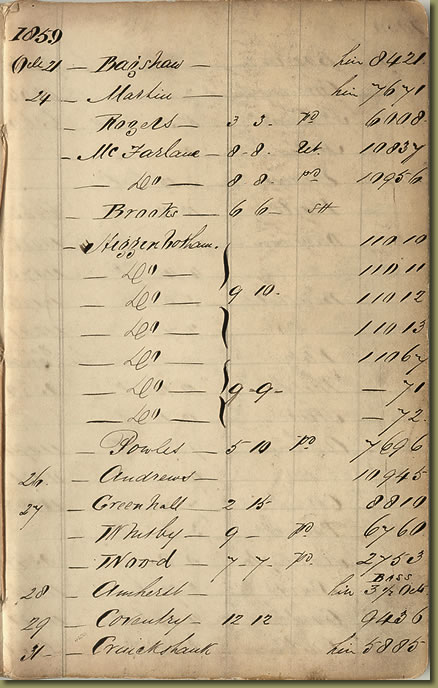 1859
Oct 21 — Bagshaw — hire 8421
24 — Martin — hire 7671
— Rogers — 3 3 - Pd 6008
— Mc Farlane — 8 - 8 - Ret. 10837
— Do — 8 8 - Pd 10956
— Brooks — 6 6 -
— Higgenbotham. 11010
— Do — 11011
— Do — 9 10. 11012
— Do — 11013
— Do — 11067
— Do — 9 - 9 - — 71
— Do — — 72
— Powles — 5 10 Pd 7696
26. — Andrews — 10945
27 — Greenhall — 2 15 - 8810
— Whitby — 9 - Pd 6760
— Wood — 7 - 7 - Pd. 2753
28 — Amherst — hire Bass 3 1/2 Octs
29 — Coventry — 12 12 9436
31 — Cruickshank hire 5885